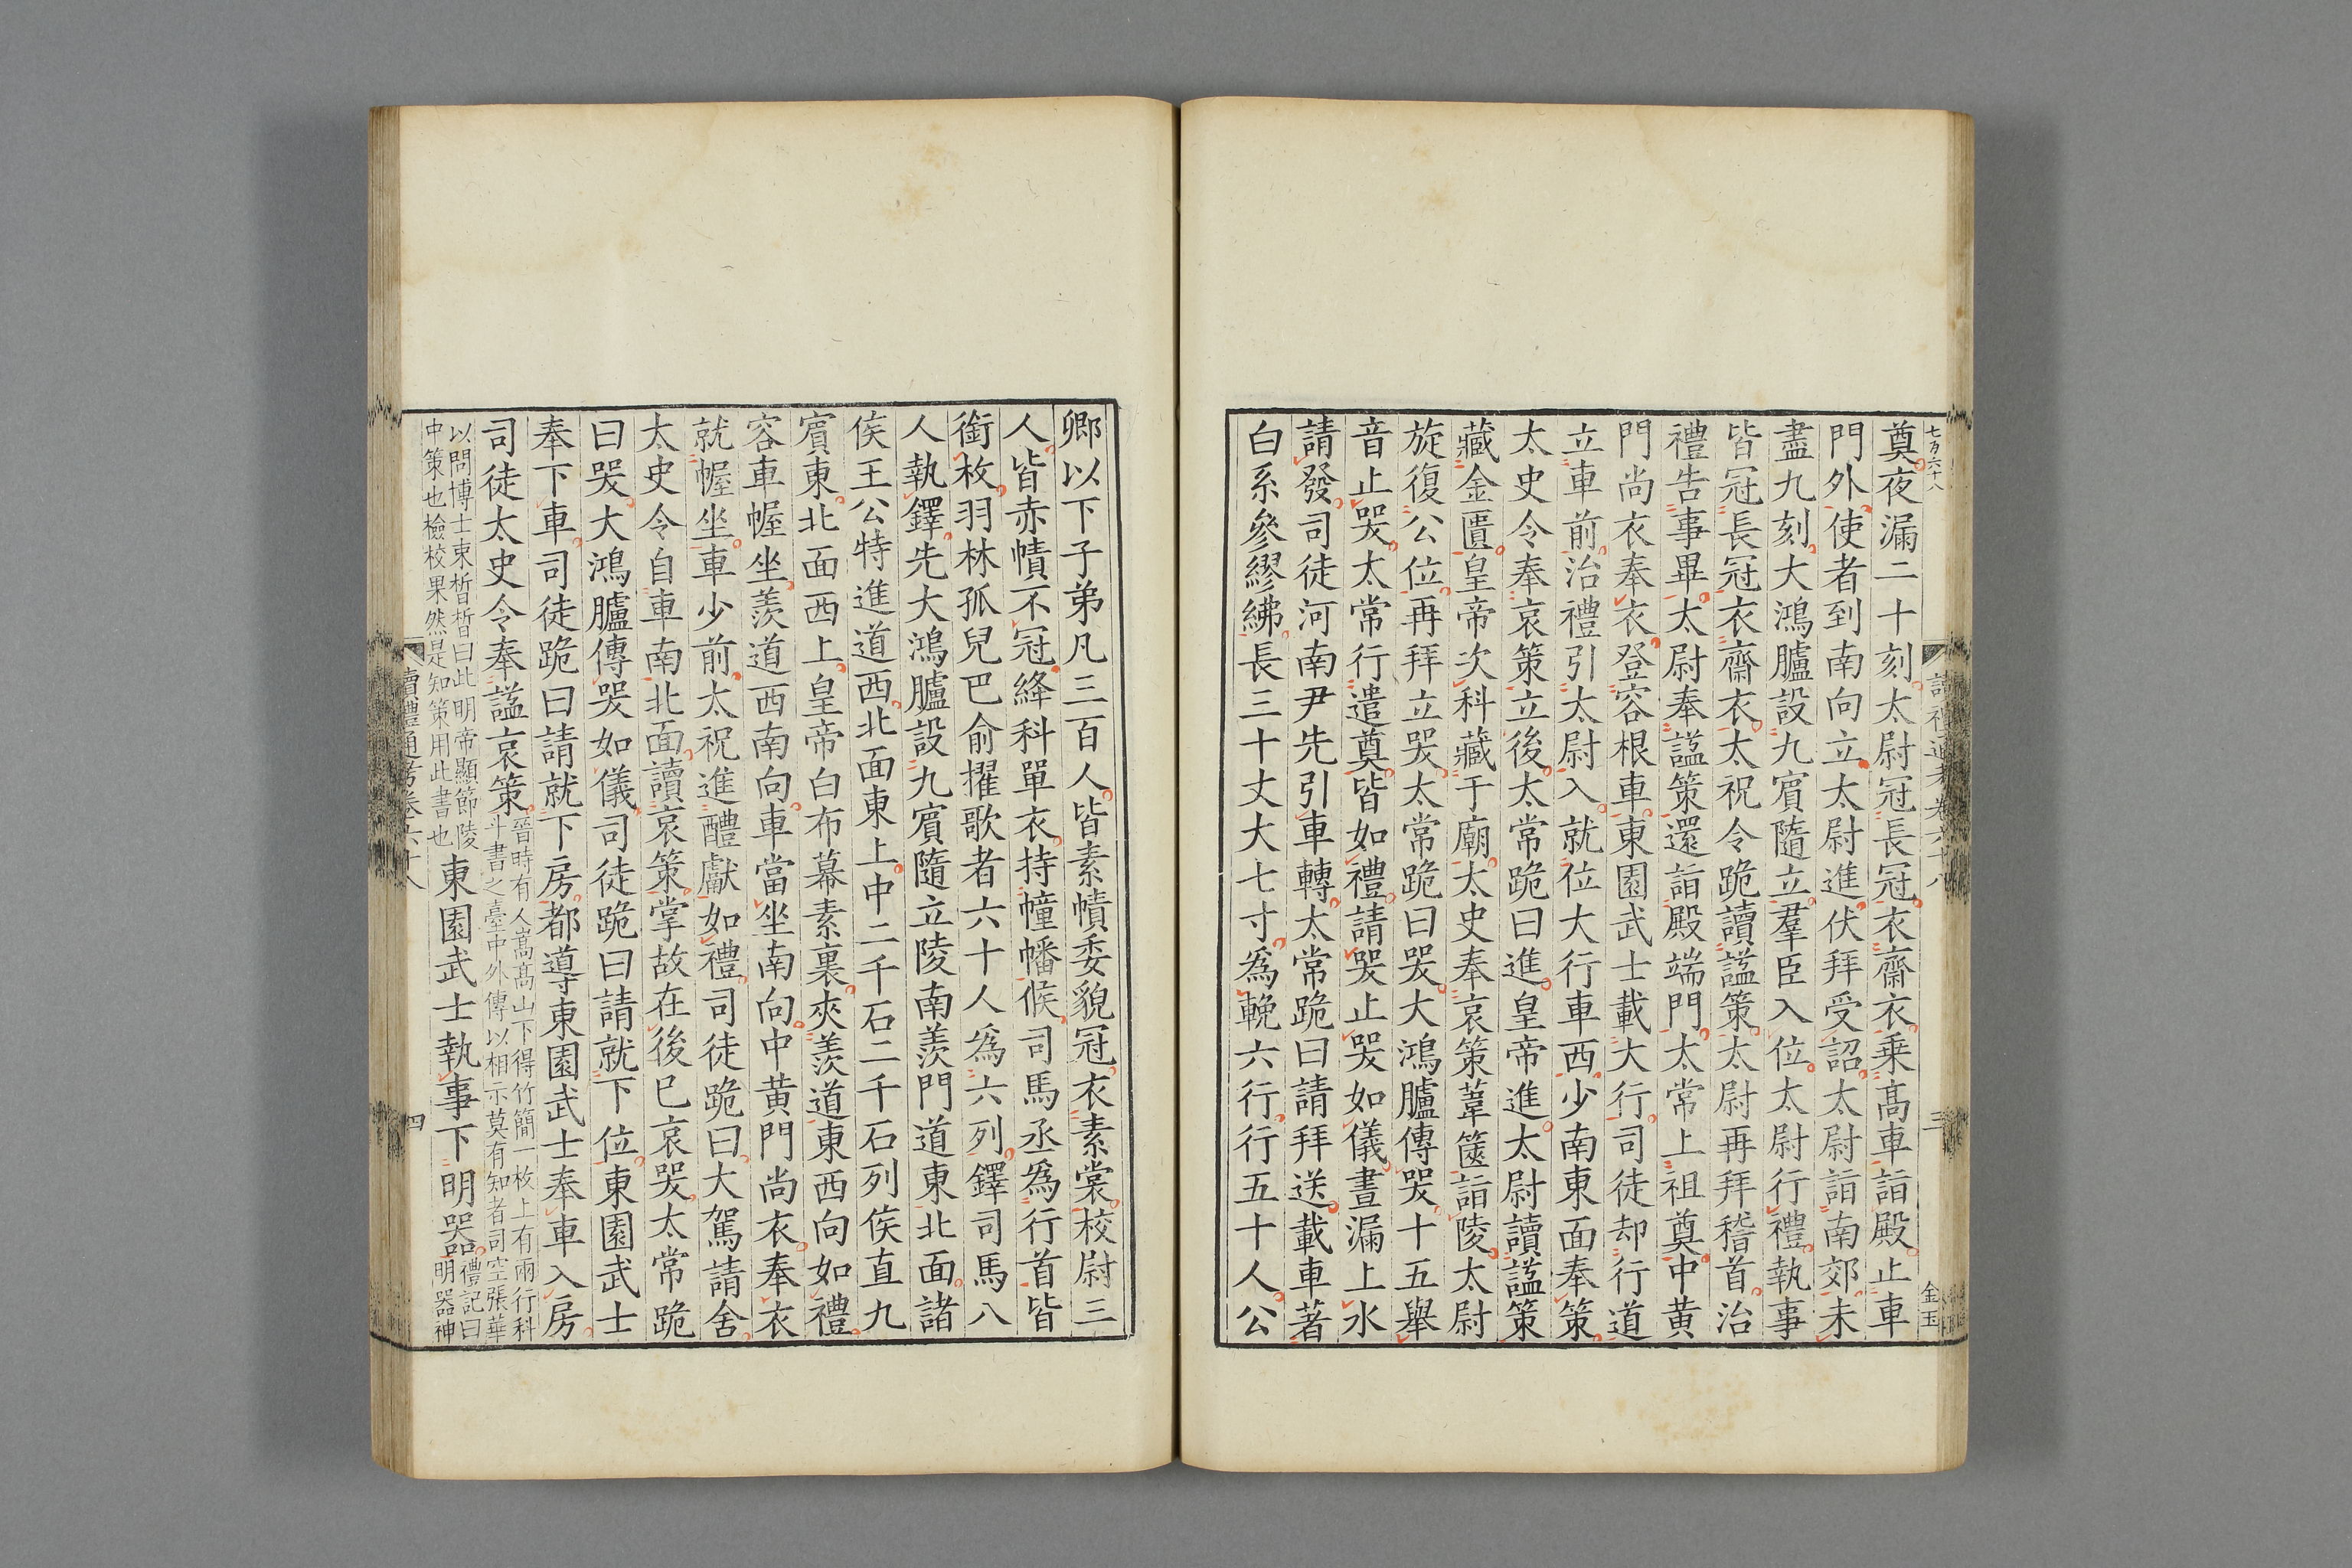 七百六十八
奠夜漏二十刻太尉冠長冠衣齋衣乘高車詣殿止車
門外使者到南向立太尉進伏拜受詔太尉詣南郊未
盡九刻大鴻臚設九賓隨立羣臣入位太尉行禮執事
皆冠長冠衣齋衣太祝令跪讀謚策太尉再拜稽首治
禮告事畢太尉奉謚策還詣殿端門太常上祖奠中黃
門尚衣奉衣登容根車東園武士載大行司徒却行道
立車前治禮引太尉入就位大行車西少南東面奉策
太史令奉哀策立後太常跪曰進皇帝進太尉讀謚策
藏金匱皇帝次科藏于廟太史奉哀策葦篋詣陵太尉
旋復公位再拜立哭太常跪曰哭大鴻臚傳哭十五舉
音止哭太常行遣奠皆如禮請哭止哭如儀晝漏上水
請發司徒河南尹先引車轉太常跪曰請拜送載車著
白系參繆紼長三十丈大七寸爲輓六行行五十人公
讀禮通考卷六十八
三
金玉
卿以下子弟凡三百人皆素幘委貌冠衣素裳校尉三
人皆赤幘不冠絳科單衣持幢幡候司馬丞爲行首皆
銜枚羽林孤兒巴俞擢歌者六十人爲六列鐸司馬八
人執鐸先大鴻臚設九賓隨立陵南羨門道東北面諸
侯王公特進道西北面東上中二千石二千石列侯直九
賓東北面西上皇帝白布幕素裏夾羨道東西向如禮
容車幄坐羨道西南向車當坐南向中黃門尚衣奉衣
就幄坐車少前太祝進醴獻如禮司徒跪曰大駕請舍
太史令自車南北面讀哀策掌故在後已哀哭太常跪
曰哭大鴻臚傳哭如儀司徒跪曰請就下位東園武士
奉下車司徒跪曰請就下房都導東園武士奉車入房
司徒太史令奉謚哀策晉時有人嵩高山下得竹簡一枚上有兩行科
斗書之臺中外傳以相示莫有知者司空張華
以問博士束晳晳曰此明帝顯節陵
中策也檢校果然是知策用此書也東園武士執事下明器禮記曰
明器神
讀禮通考卷六十八
四